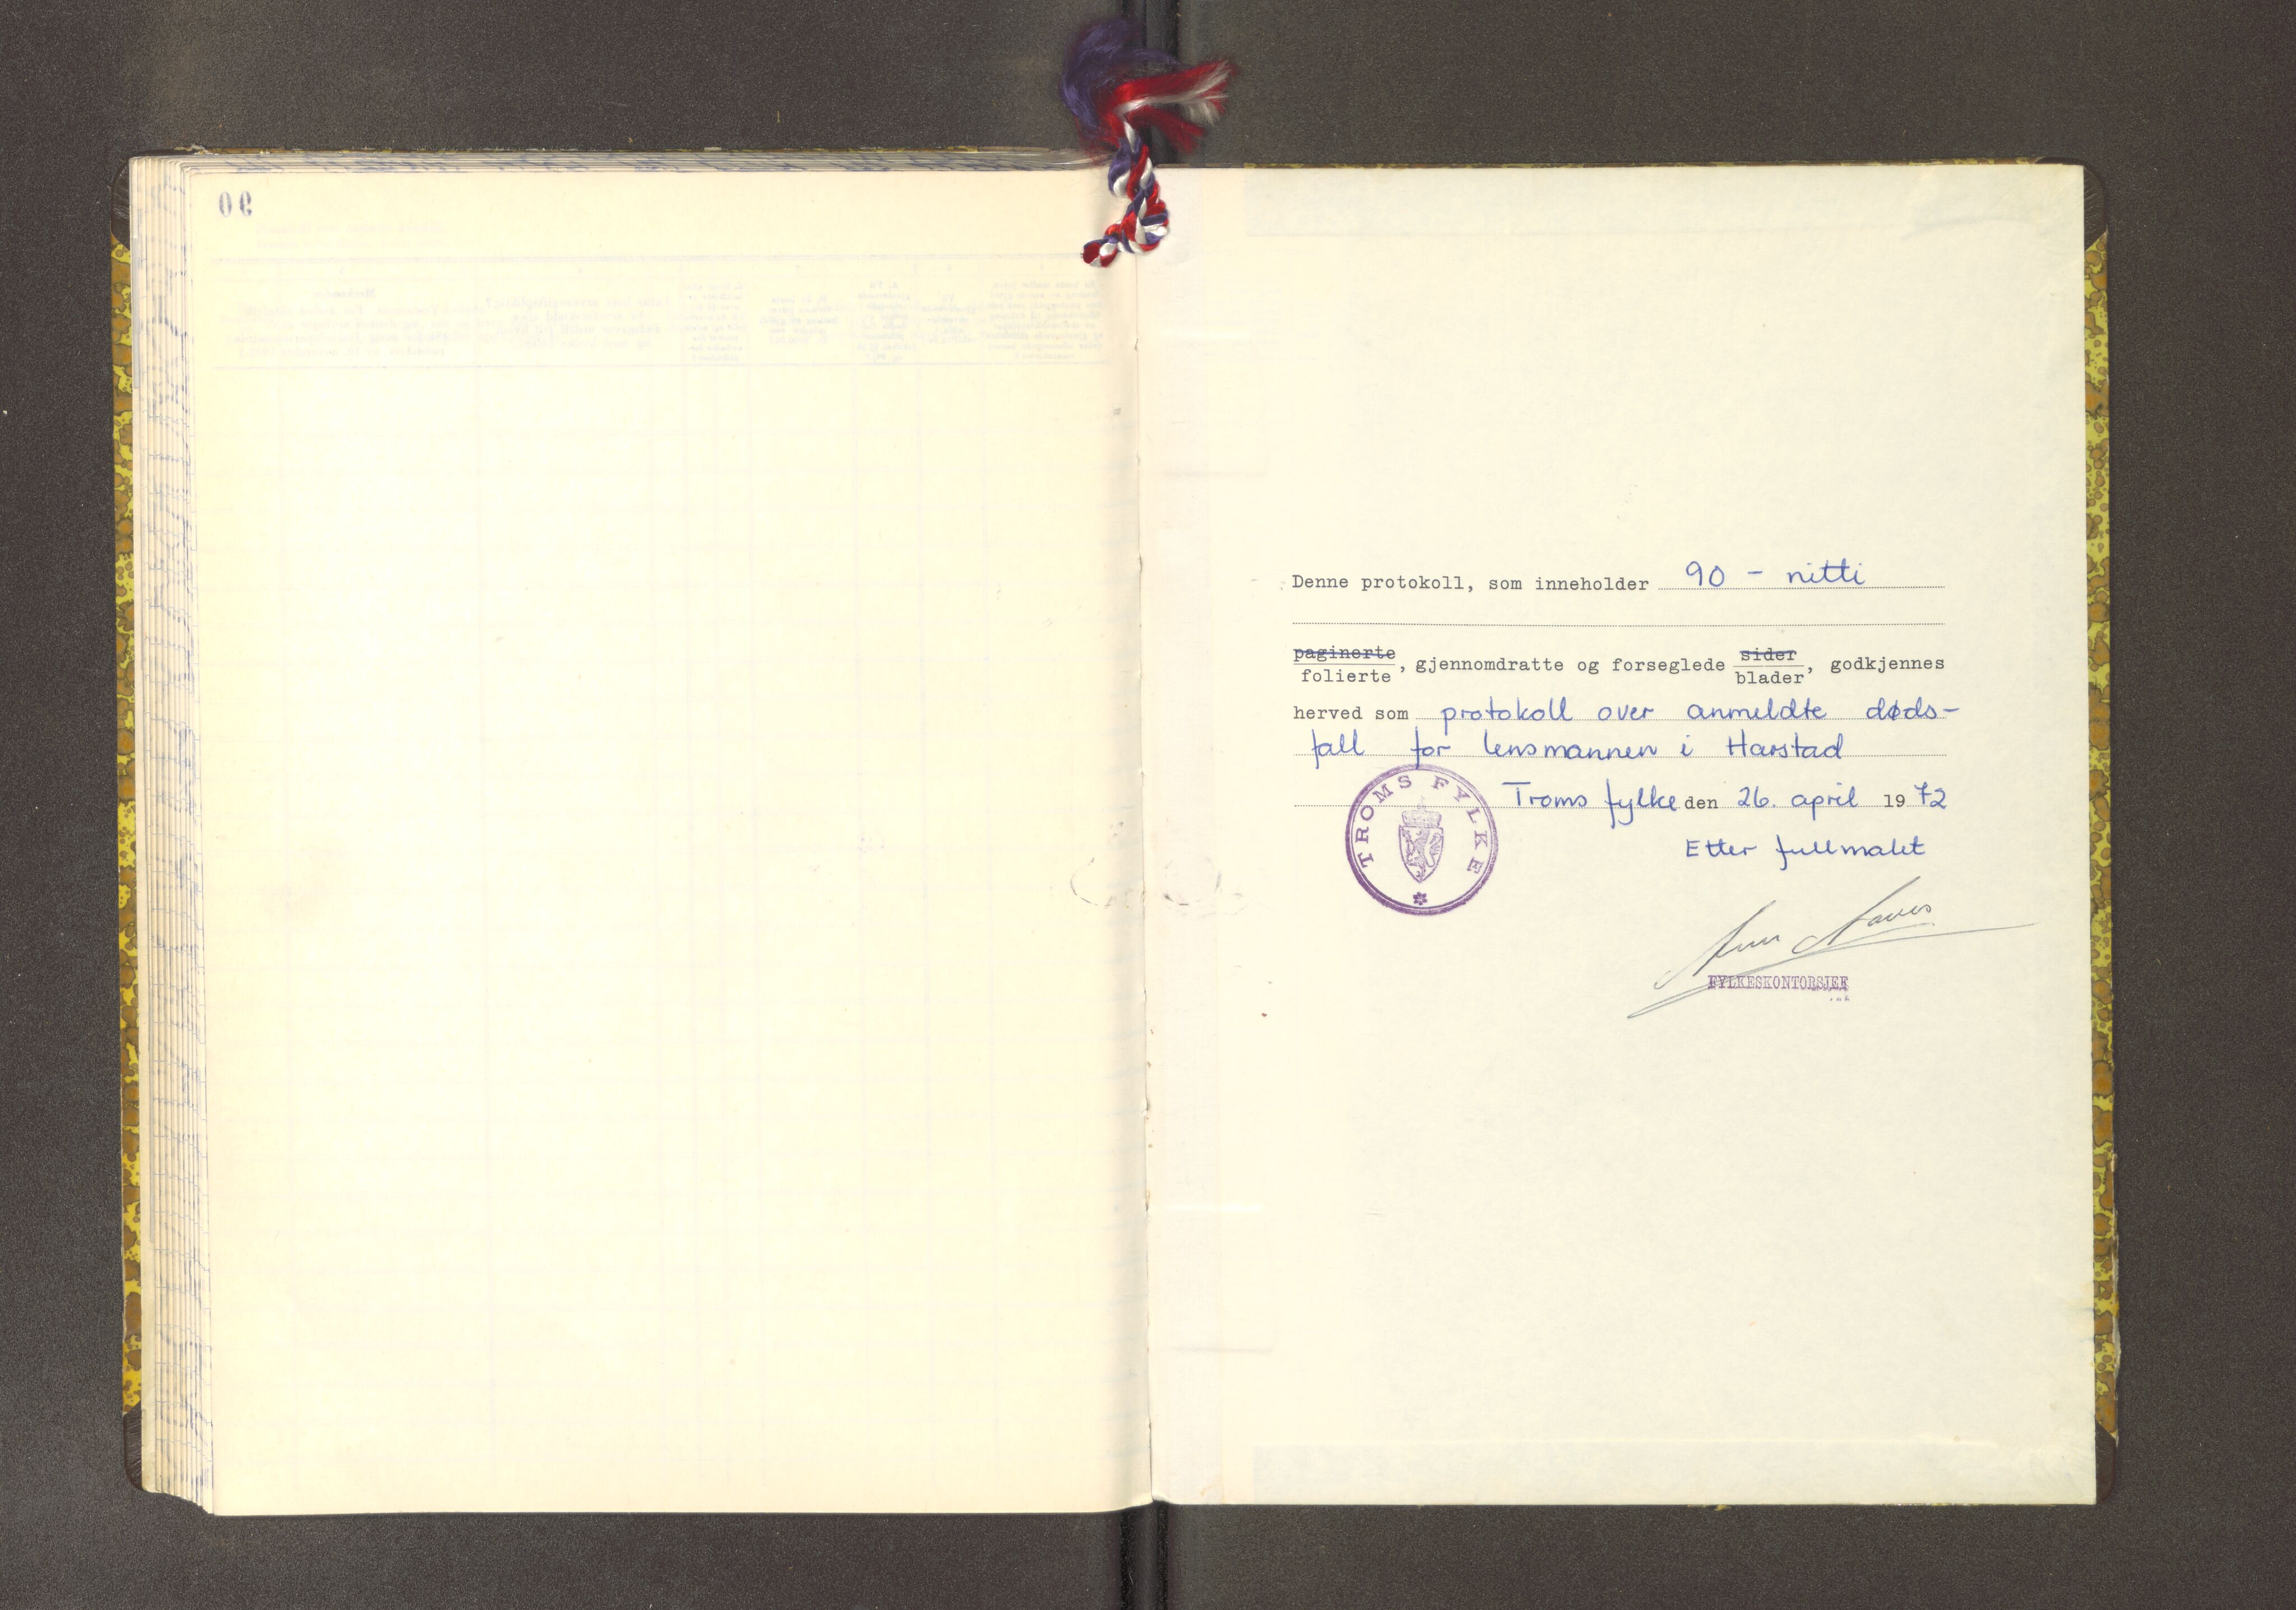 Denne protokoll, som inneholder 90 - nitti
paginerte
folierte, gjennomdratte og forseglede sider
blader, godkjennes
herved som protokoll over anmeldte døds-
fall for lensmannen i Harstad
Troms fylke den 26. april 1972
TROMS FYLKE
Etter fullmakt
FYLKESKONTORSJEF